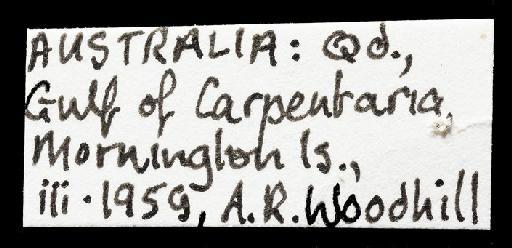 AUSTRALIA: Qd.,
Gulf of Carpentaria,
Mornington Is.,
iii·1959, A.R.Woodhill